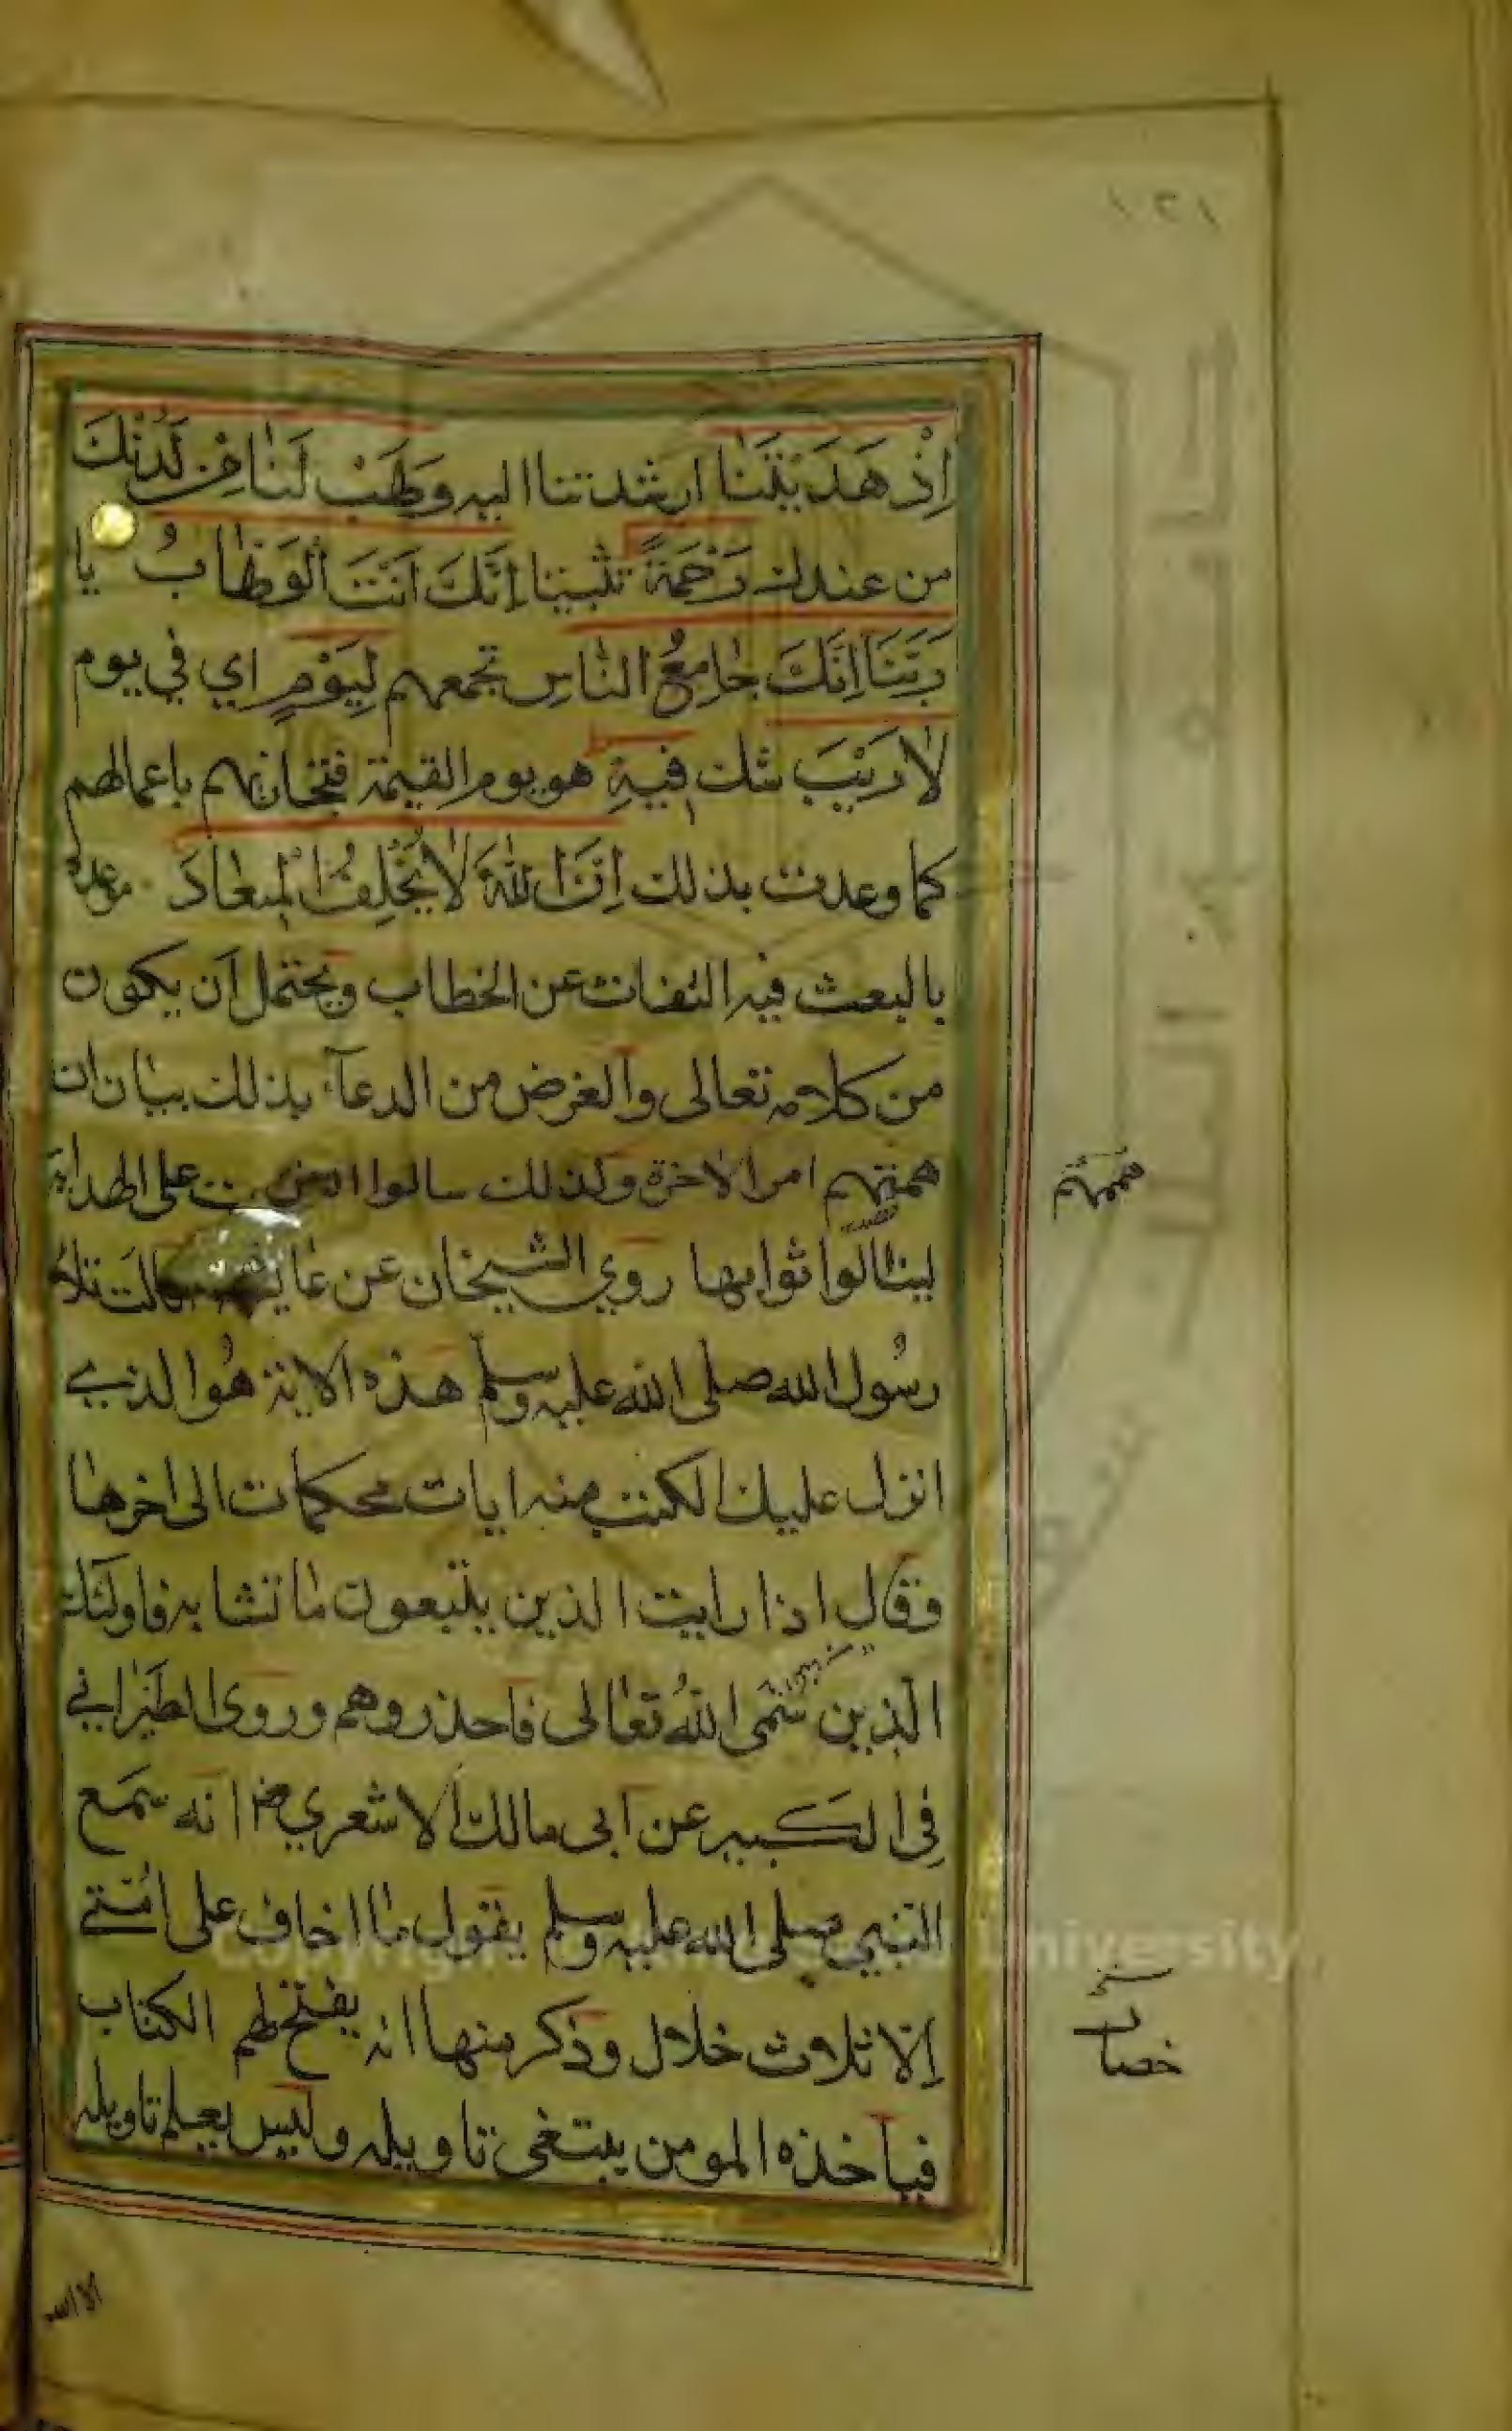 ١٢١
اِذْ هَدَيْتَنَا ارشدتنا اليه وَهَبْ لَنَا مِنْ لَدُنْكَ
من عندك رَحْمَةً تثبيتا اِنَّكَ اَنْتَ الْوَهَّابُ يا
رَبَّنَا اِنَّكَ جَامِعُ النَّاسِ تجمعهم لِيَوْمٍ اي في يوم
لَا رَيْبَ شك فِيهِ هو يوم القيمة فتجازيهم باعمالهم
كما وعدت بذلك اِنَّ اللّٰهَ لَا يُخْلِفُ الْمِيعَادَ موعده
بالبعث فيه التفات عن الخطاب ويحتمل ان يكون
من كلامه تعالى والغرض من الدعآء بذلك بيان ان
همتهم امر الاخرة ولذلك سالوا على الهداية
لينالوا ثوابها روي الشيخان عن قالت تلا
رسُول الله صلى الله عليه وسلم هذه الاية هُو الذي
انزل عليك الكتب منه ايات محكمات الى اخرها
وقال اذا رايت الذين يتبعون ما تشابه فاولئك
الذين سَمى اللهُ تعالى فاحذروهم وروى الطبراني
في الكبير عن ابى مالك الاشعري رض انه سمع
النبي صلى الله عليه وسلم يقول ما اخاف على امتي
الا ثلاث خلال وذكر منها انه يفتح لهم الكتاب
فياخذه المومن يبتغى تاويله وليس يعلم تاويله
خصال
الا الله
Copyright University